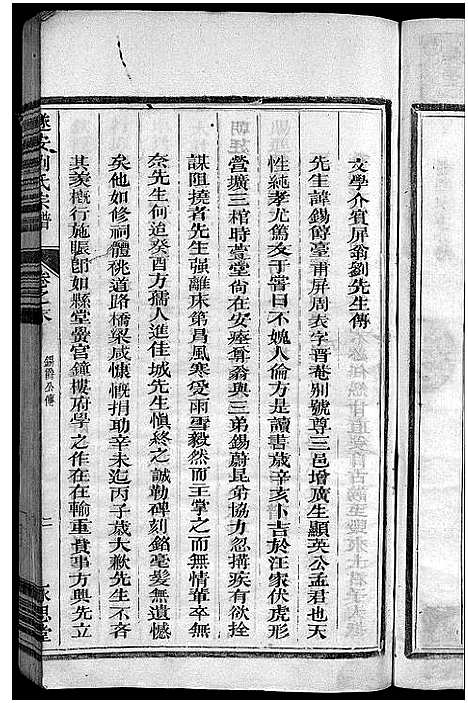 文學介賓屏翁劉先生傳
先生諱錫爵臺甫屏周表字晋菴别號尊三邑增廣生顯英公孟君也天
性純孝尤篤友于嘗曰不媿人倫方是讀書歲辛亥卜吉於汪家伏虎形
營壙三棺時萱堂尚在安瘞翁與三弟錫蔚昆弟協力忽搆疾有欲拴
謀阻撓者先生强離床第昌風寒受雨雪毅然而王掌之無情畢卒無
奈先生何迨癸酉方孺人進佳城先生慎終之誠勒碑刻銘毫髮無遺憾
矣他如修祠體祧道路橋梁咸慷慨捐助辛未迄丙子歲大歉先生不吝
其羡槪行施賑卽如縣堂黌宮鐘樓府學之作在在輸重貲事方興先立
遂安劉氏宗譜
卷之末
錫爵公傳
二
永思堂